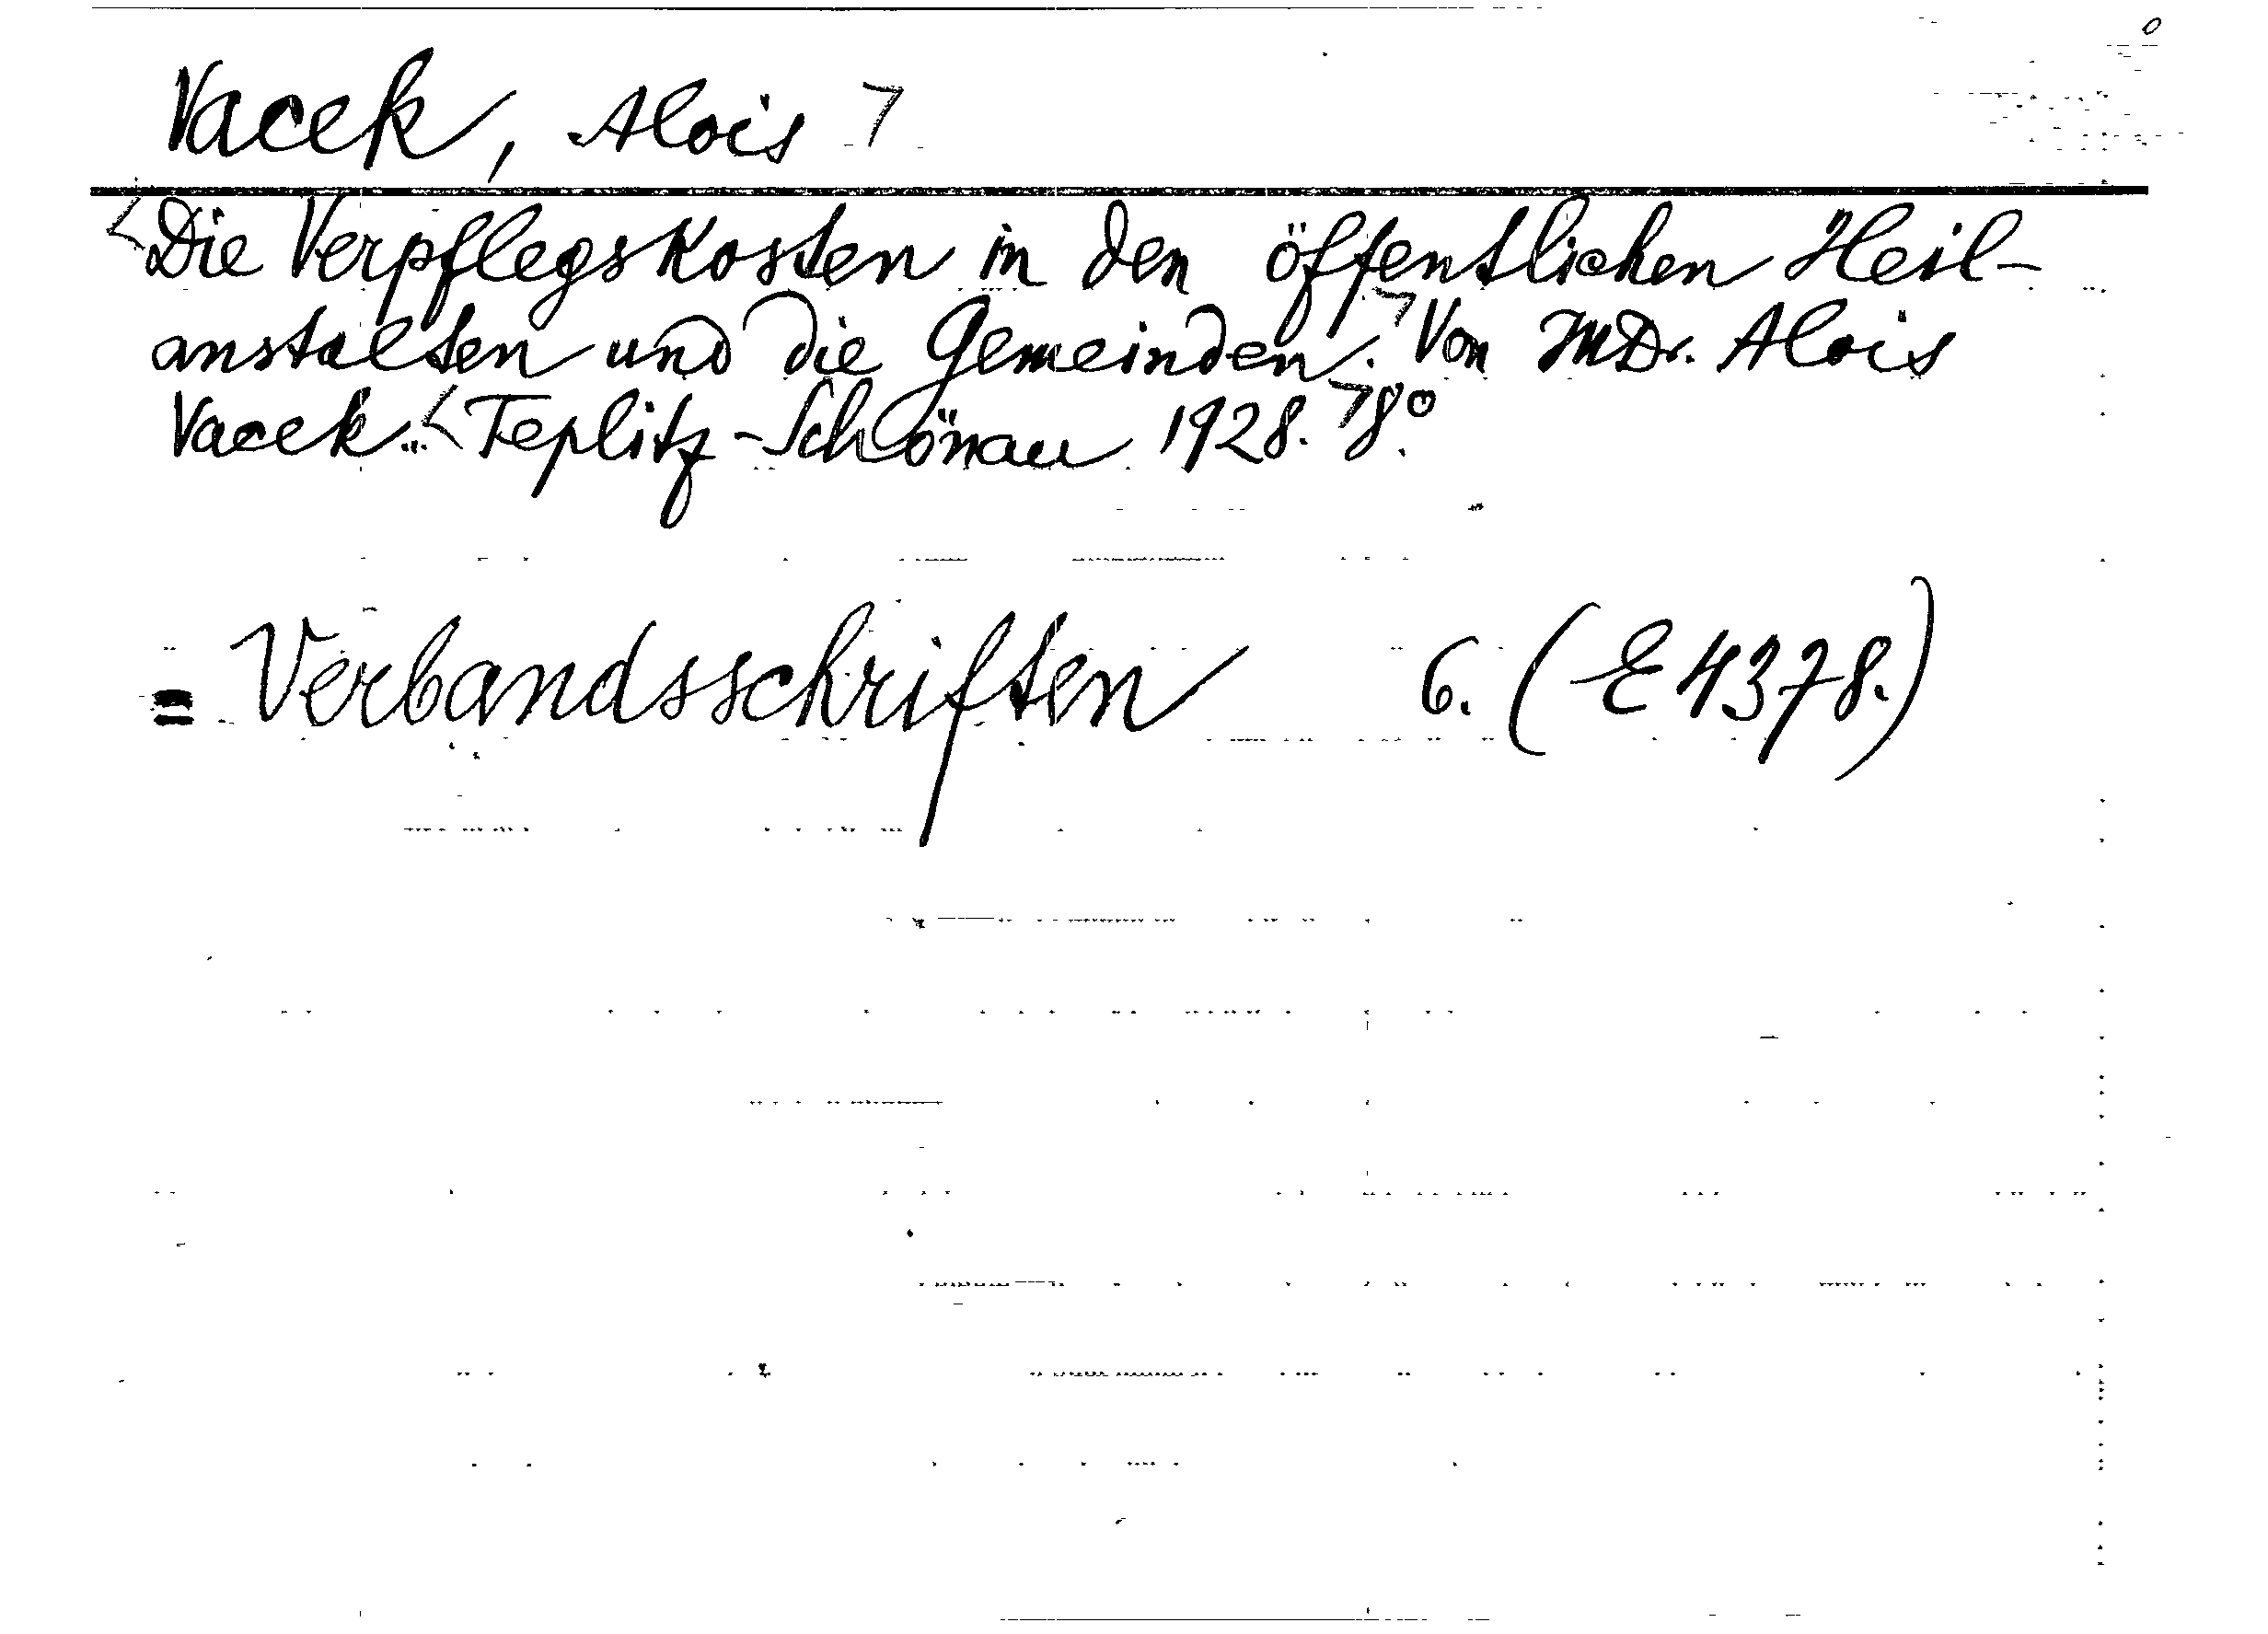 Vacek, Alois
Die Verpflegskosten in den öffentlichen Heil-
anstalten und die Gemeinden. Von MDr. Alois
Vacek... Teplitz-Schönau 1928. 8°.
= Verbandsschriften 6. (E 4378.)